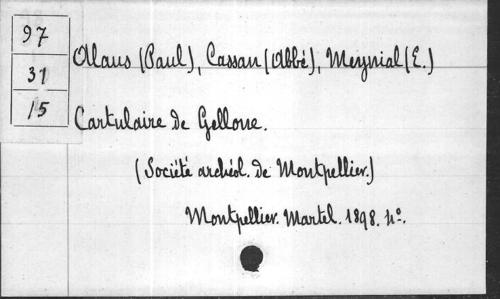 97
31
15
Alaus (Paul), Cassan (Abbé), Meynial (E.)
Cartulaire de Gellone.
(Société archéol. de Montpellier.)
Montpellier. Martel. 1898. 4º.